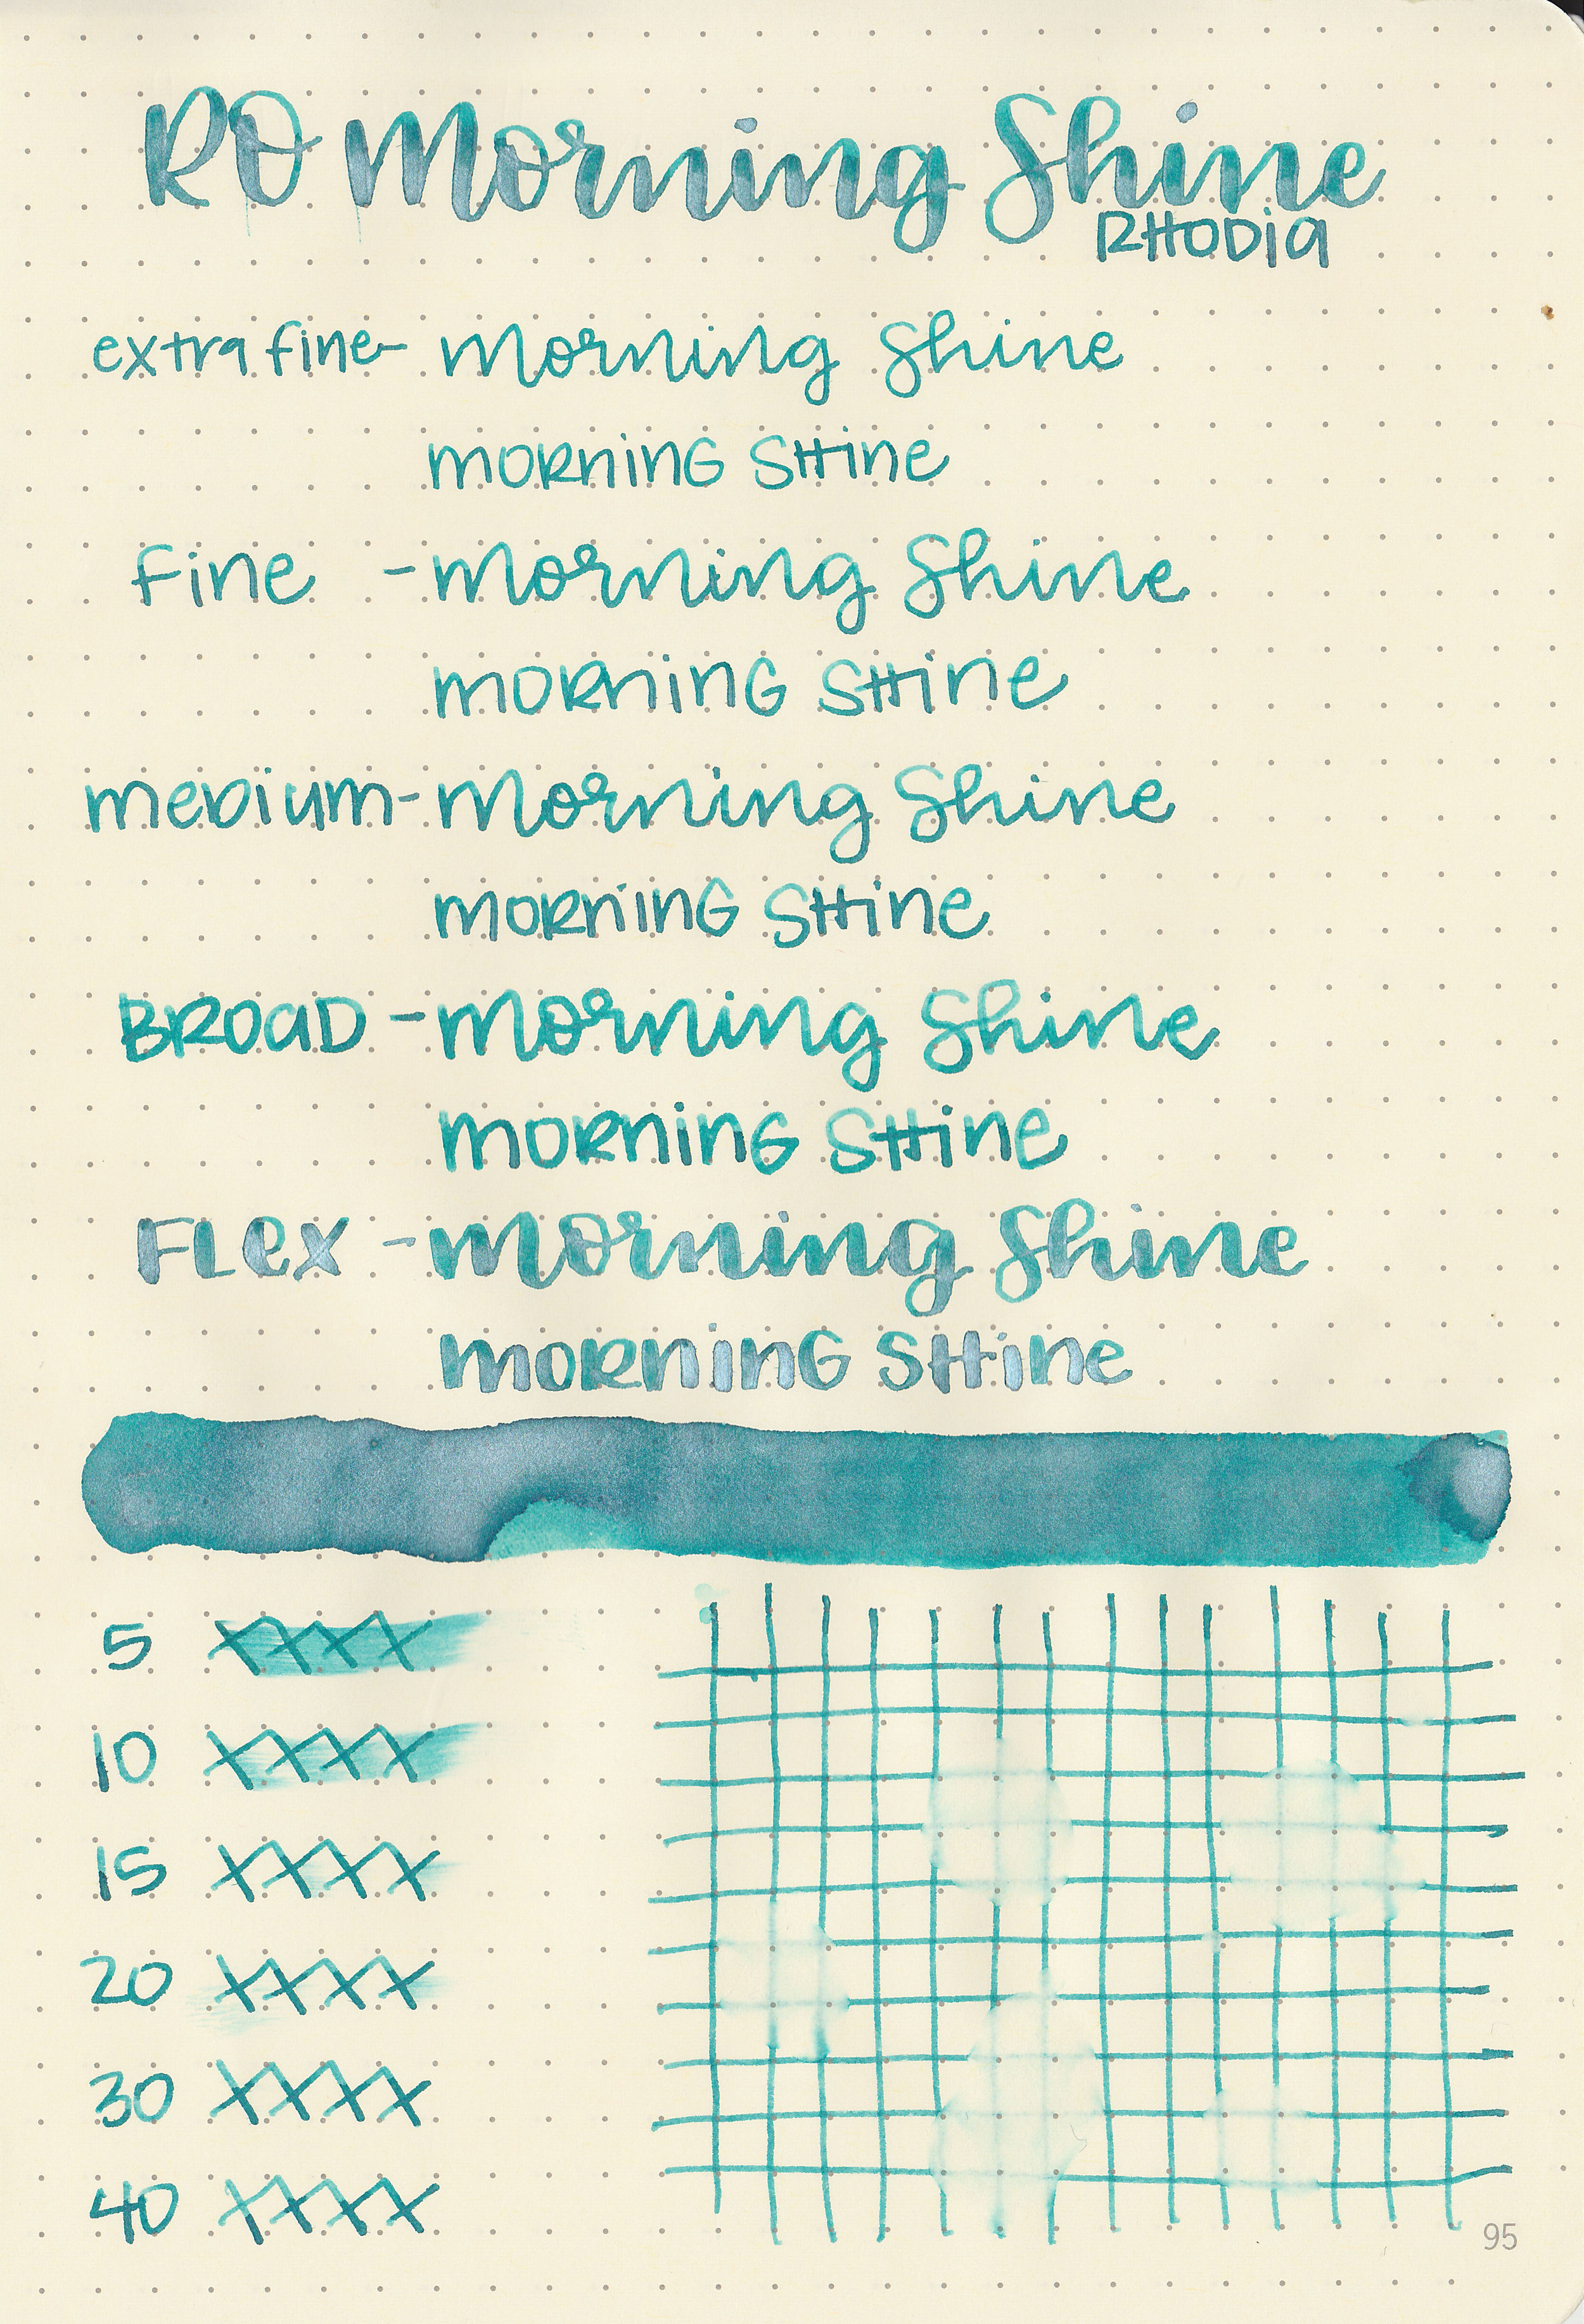 RO Morning Shine
RHODia
extra fine- Morning Shine
MORNinG SHine
Fine - Morning Shine
MORNinG SHine
meDium - Morning Shine
MORNinG SHine
BROaD - Morning Shine
MORNinG SHine
FLex - Morning Shine
MORNinG SHine
5 XXXX
10 XXXX
15 XXXX
20 XXXX
30 XXXX
40 XXXX
95